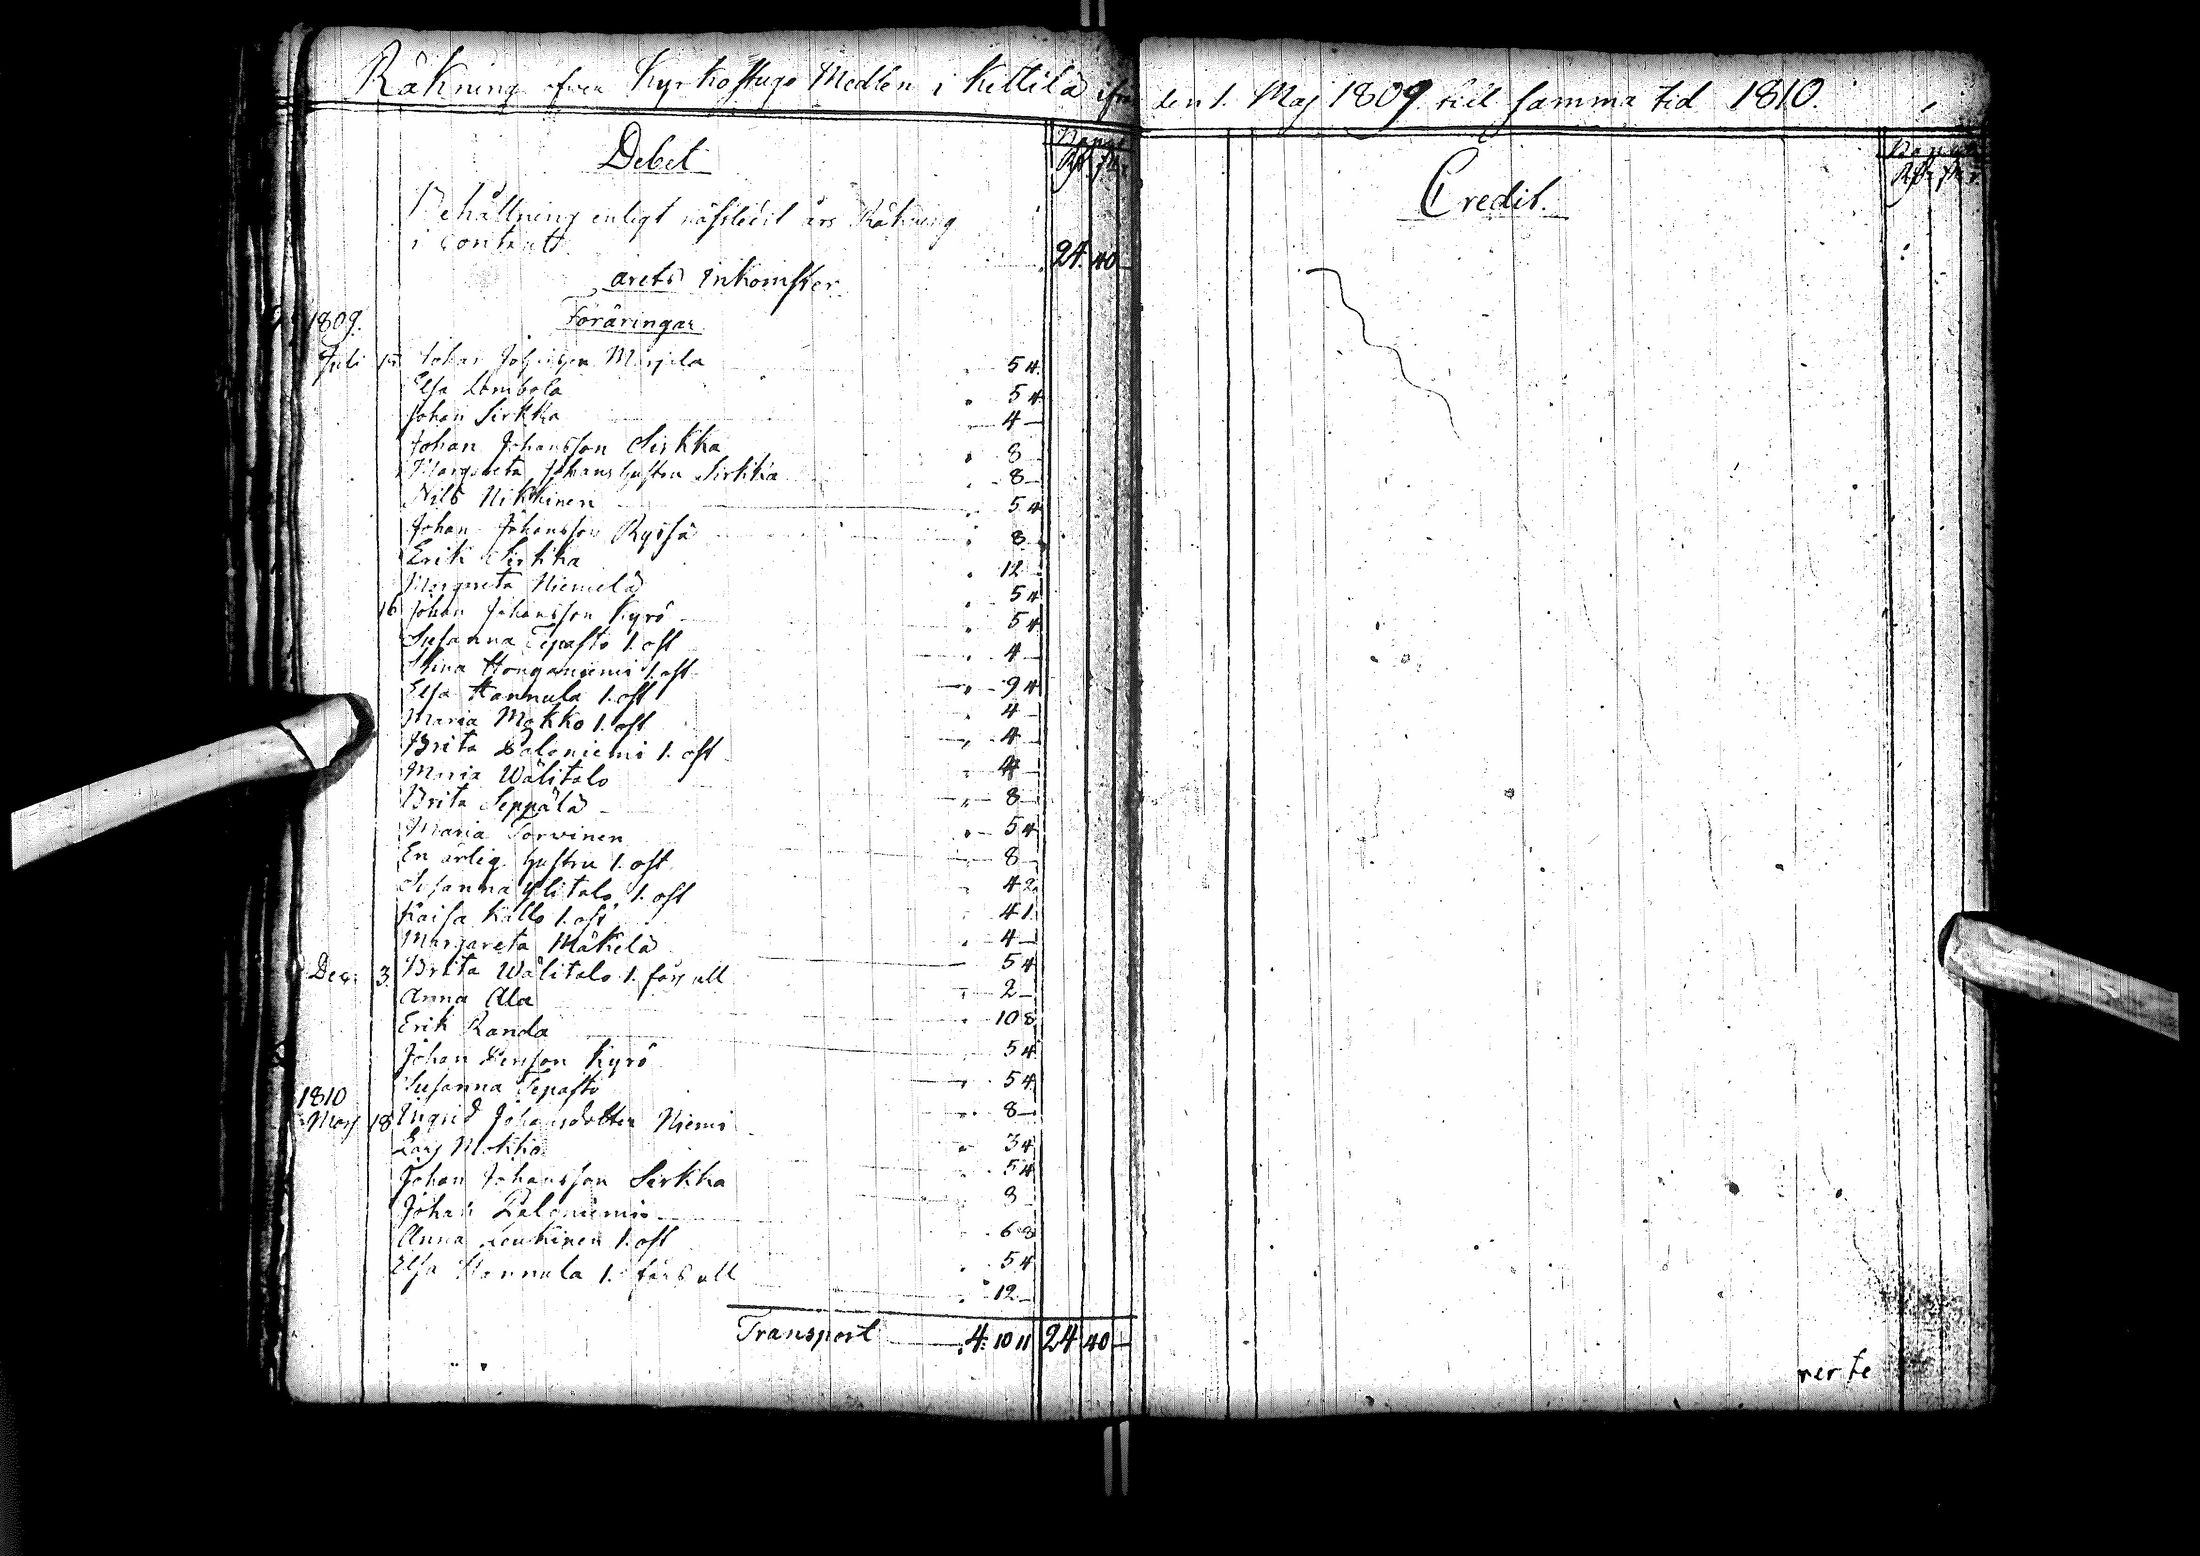 Räkning öfver Kyrkostugo Medlen i Kittilä ifrån den 1. Maj 1809 till samma tid 1810.
Debet
Rgds sk. r.
Behållning enligt nästledit års Räkning
i Contant 24 40 —
årets Inkomster
1809. Föräringar
Juli 15 Johan Johansson 5 4
Elsa Lombola 5 4
Johan Sirkka 4 —
Johan Johansson Sirkka 8
Margareta Johans hustru Sirkka 8 —
Nils Nikkinen 5 4
Johan Johansson 8
Erik Sirkka 12
Margreta Niemelä 5 4
16 Johan Johansson Kyrö 5 4
Susanna Tepasto 1. ost 4
Stina Honganiemi 1. ost 9 4
Elsa Hannula 1. ost 4 —
Maria Mokko 1. ost 4 —
Brita Paloniemi 1. ost 4 —
Maria Wälitalo 8 —
Brita Seppälä 5 4
Maria Torvinen 8 —
En ärlig hustru 1. ost 4 2
Susanna Ylitalo 1. ost 4 1
Kaisa Kallo 1. ost 4 —
Margareta Mäkelä 5 4
Dec. 3. Brita Wälitalo 1. får ull 2 —
Anna Ala 10 8
Erik Randa 5 4
Johan Persson Kyrö 5 4
Susanna Tepasto 8 —
1810
Marj 18 Ingrid Johansdotter Niemi 3 4
Lars Mokko 5 4
Johan Johansson Sirkka 8
Johan Paloniemi 6 8
Anna 1. ost 5 4
Elsa Hannula 1. får ull 12 —
Transport 4. 10 11 24 40 —
Credit.
verte